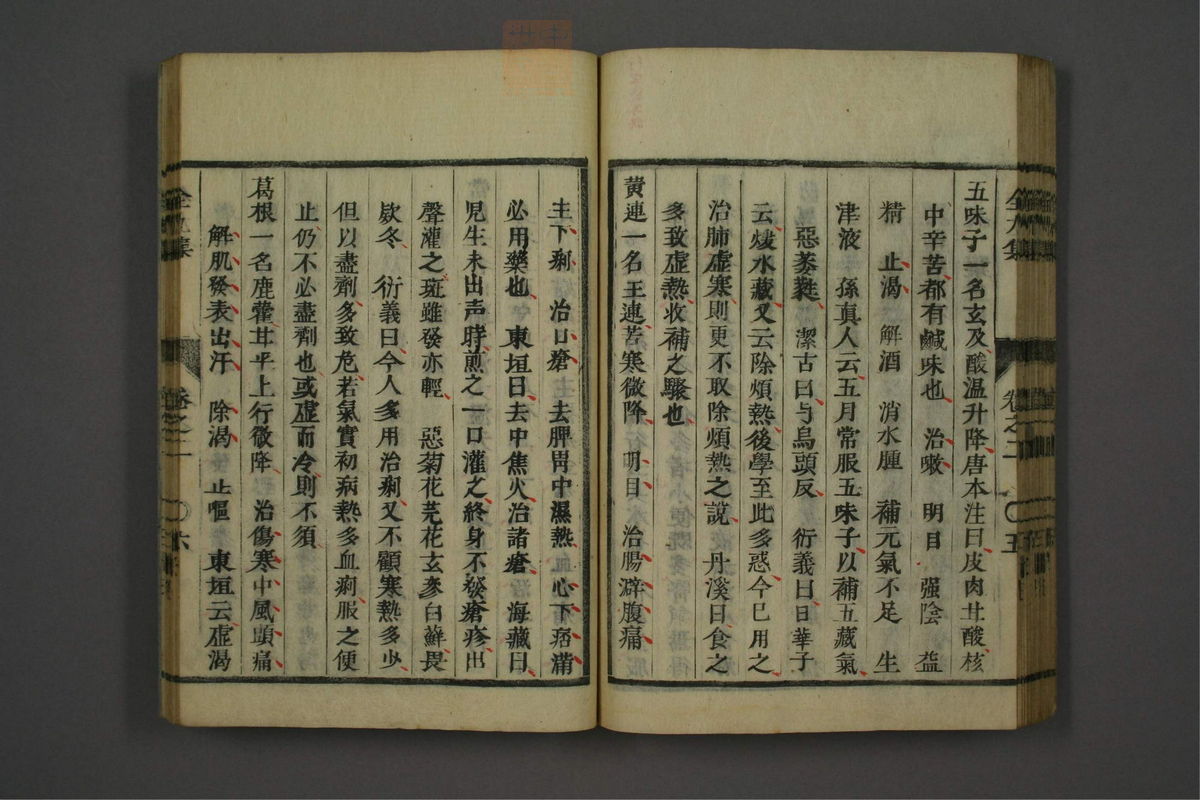 五味子一名玄及酸温升降唐本注曰皮肉甘酸核
中辛苦都有鹹味也 治嗽 明目 强陰 益
精 止渴 解酒 消水腫 補元氣不足 生
津液 孫真人云五月常服五味子以補五藏氣
惡萎蕤 潔古曰与烏頭反 衍義曰日華子
云煖水藏又云除煩熱後學至此多惑今已用之
治肺虚寒則更不取除煩熱之說 丹溪曰食之
多致虚熱收補之驟也
黄連一名王連苦寒微降 明目 治腸澼腹痛
卷之二 〇五
主下痢 治口瘡 去脾胃中濕熱 心下痞滿
必用藥也 東垣曰去中焦火治諸瘡 海藏曰
児生未出声時煎之一口灌之終身不發瘡疹出
聲灌之斑雖發亦輕 惡菊花芫花玄參白蘚畏
欵冬 衍義曰今人多用治痢又不顧寒熱多少
但以盡劑多致危若氣實初病熱多血痢服之便
止仍不必盡劑也或虚而冷則不須
葛根一名鹿藿甘平上行微降 治傷寒中風頭痛
解肌發表出汗 除渴 止嘔 東垣云虚渴
全九集 卷之二 〇六